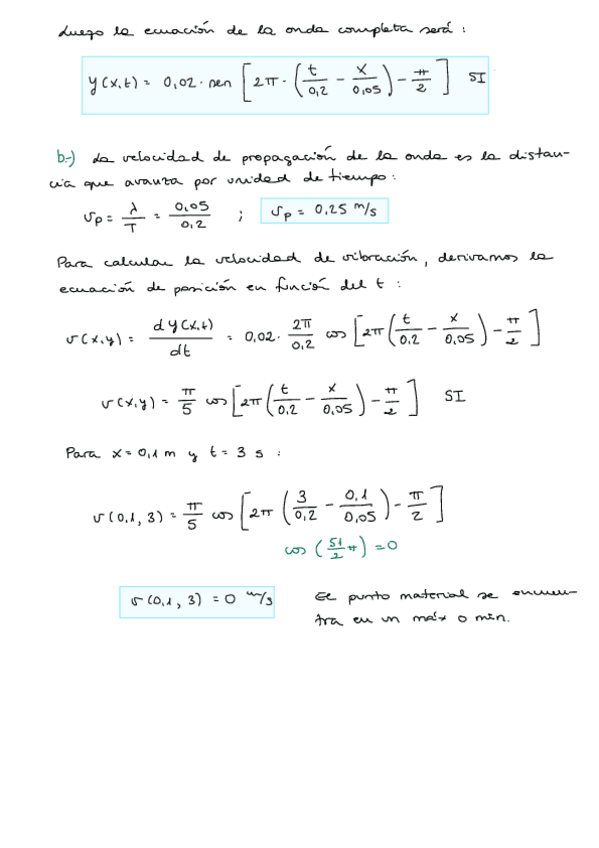 Luego la ecuación de la onda completa será :
y(x,t) = 0,02 · sen [2π · (t/0,2 - x/0,05) - π/2] SI
b.-) La velocidad de propagación de la onda es la distan-
cia que avanza por unidad de tiempo :
vp = λ/T = 0,05/0,2 ; vp = 0,25 m/s
Para calcular la velocidad de vibración, derivamos la
ecuación de posición en función del t :
v(x,y) = dy(x,t)/dt = 0,02 · 2π/0,2 cos [2π(t/0,2 - x/0,05) - π/2]
v(x,y) = π/5 cos [2π(t/0,2 - x/0,05) - π/2] SI
Para x = 0,1 m y t = 3 s :
v(0,1, 3) = π/5 cos [2π (3/0,2 - 0,1/0,05) - π/2]
cos (51/2 π) = 0
v(0,1, 3) = 0 m/s
El punto material se encuen-
tra en un máx o mín.